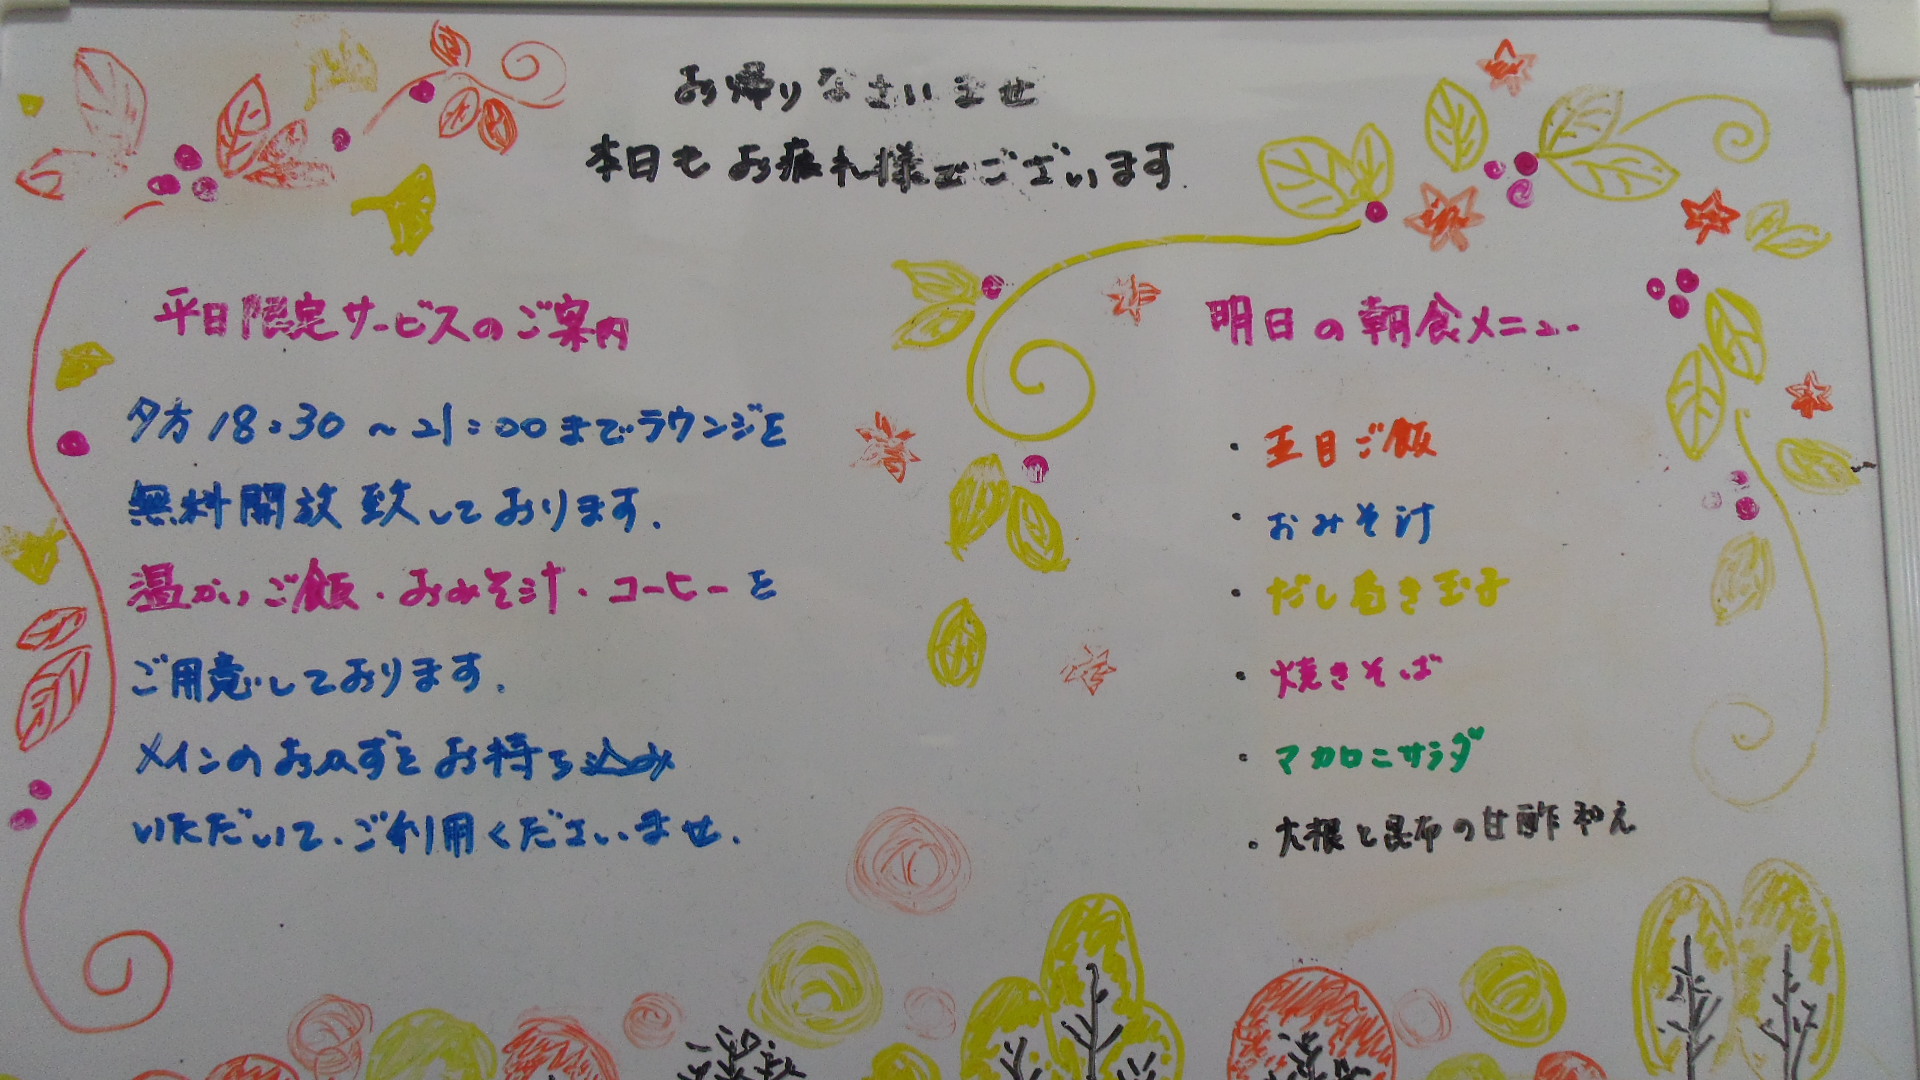 お帰りなさいませ
本日もお疲れ様でございます.
平日限定サービスのご案内
夕方18:30～21:00までラウンジを
無料開放致しております.
温かいご飯・おみそ汁・コーヒーを
ご用意しております.
メインのおかずをお持ち込み
いただいて、ご利用くださいませ.
明日の朝食メニュー
・五目ご飯
・おみそ汁
・だし巻き玉子
・焼きそば
・マカロニサラダ
・大根と昆布の甘酢和え